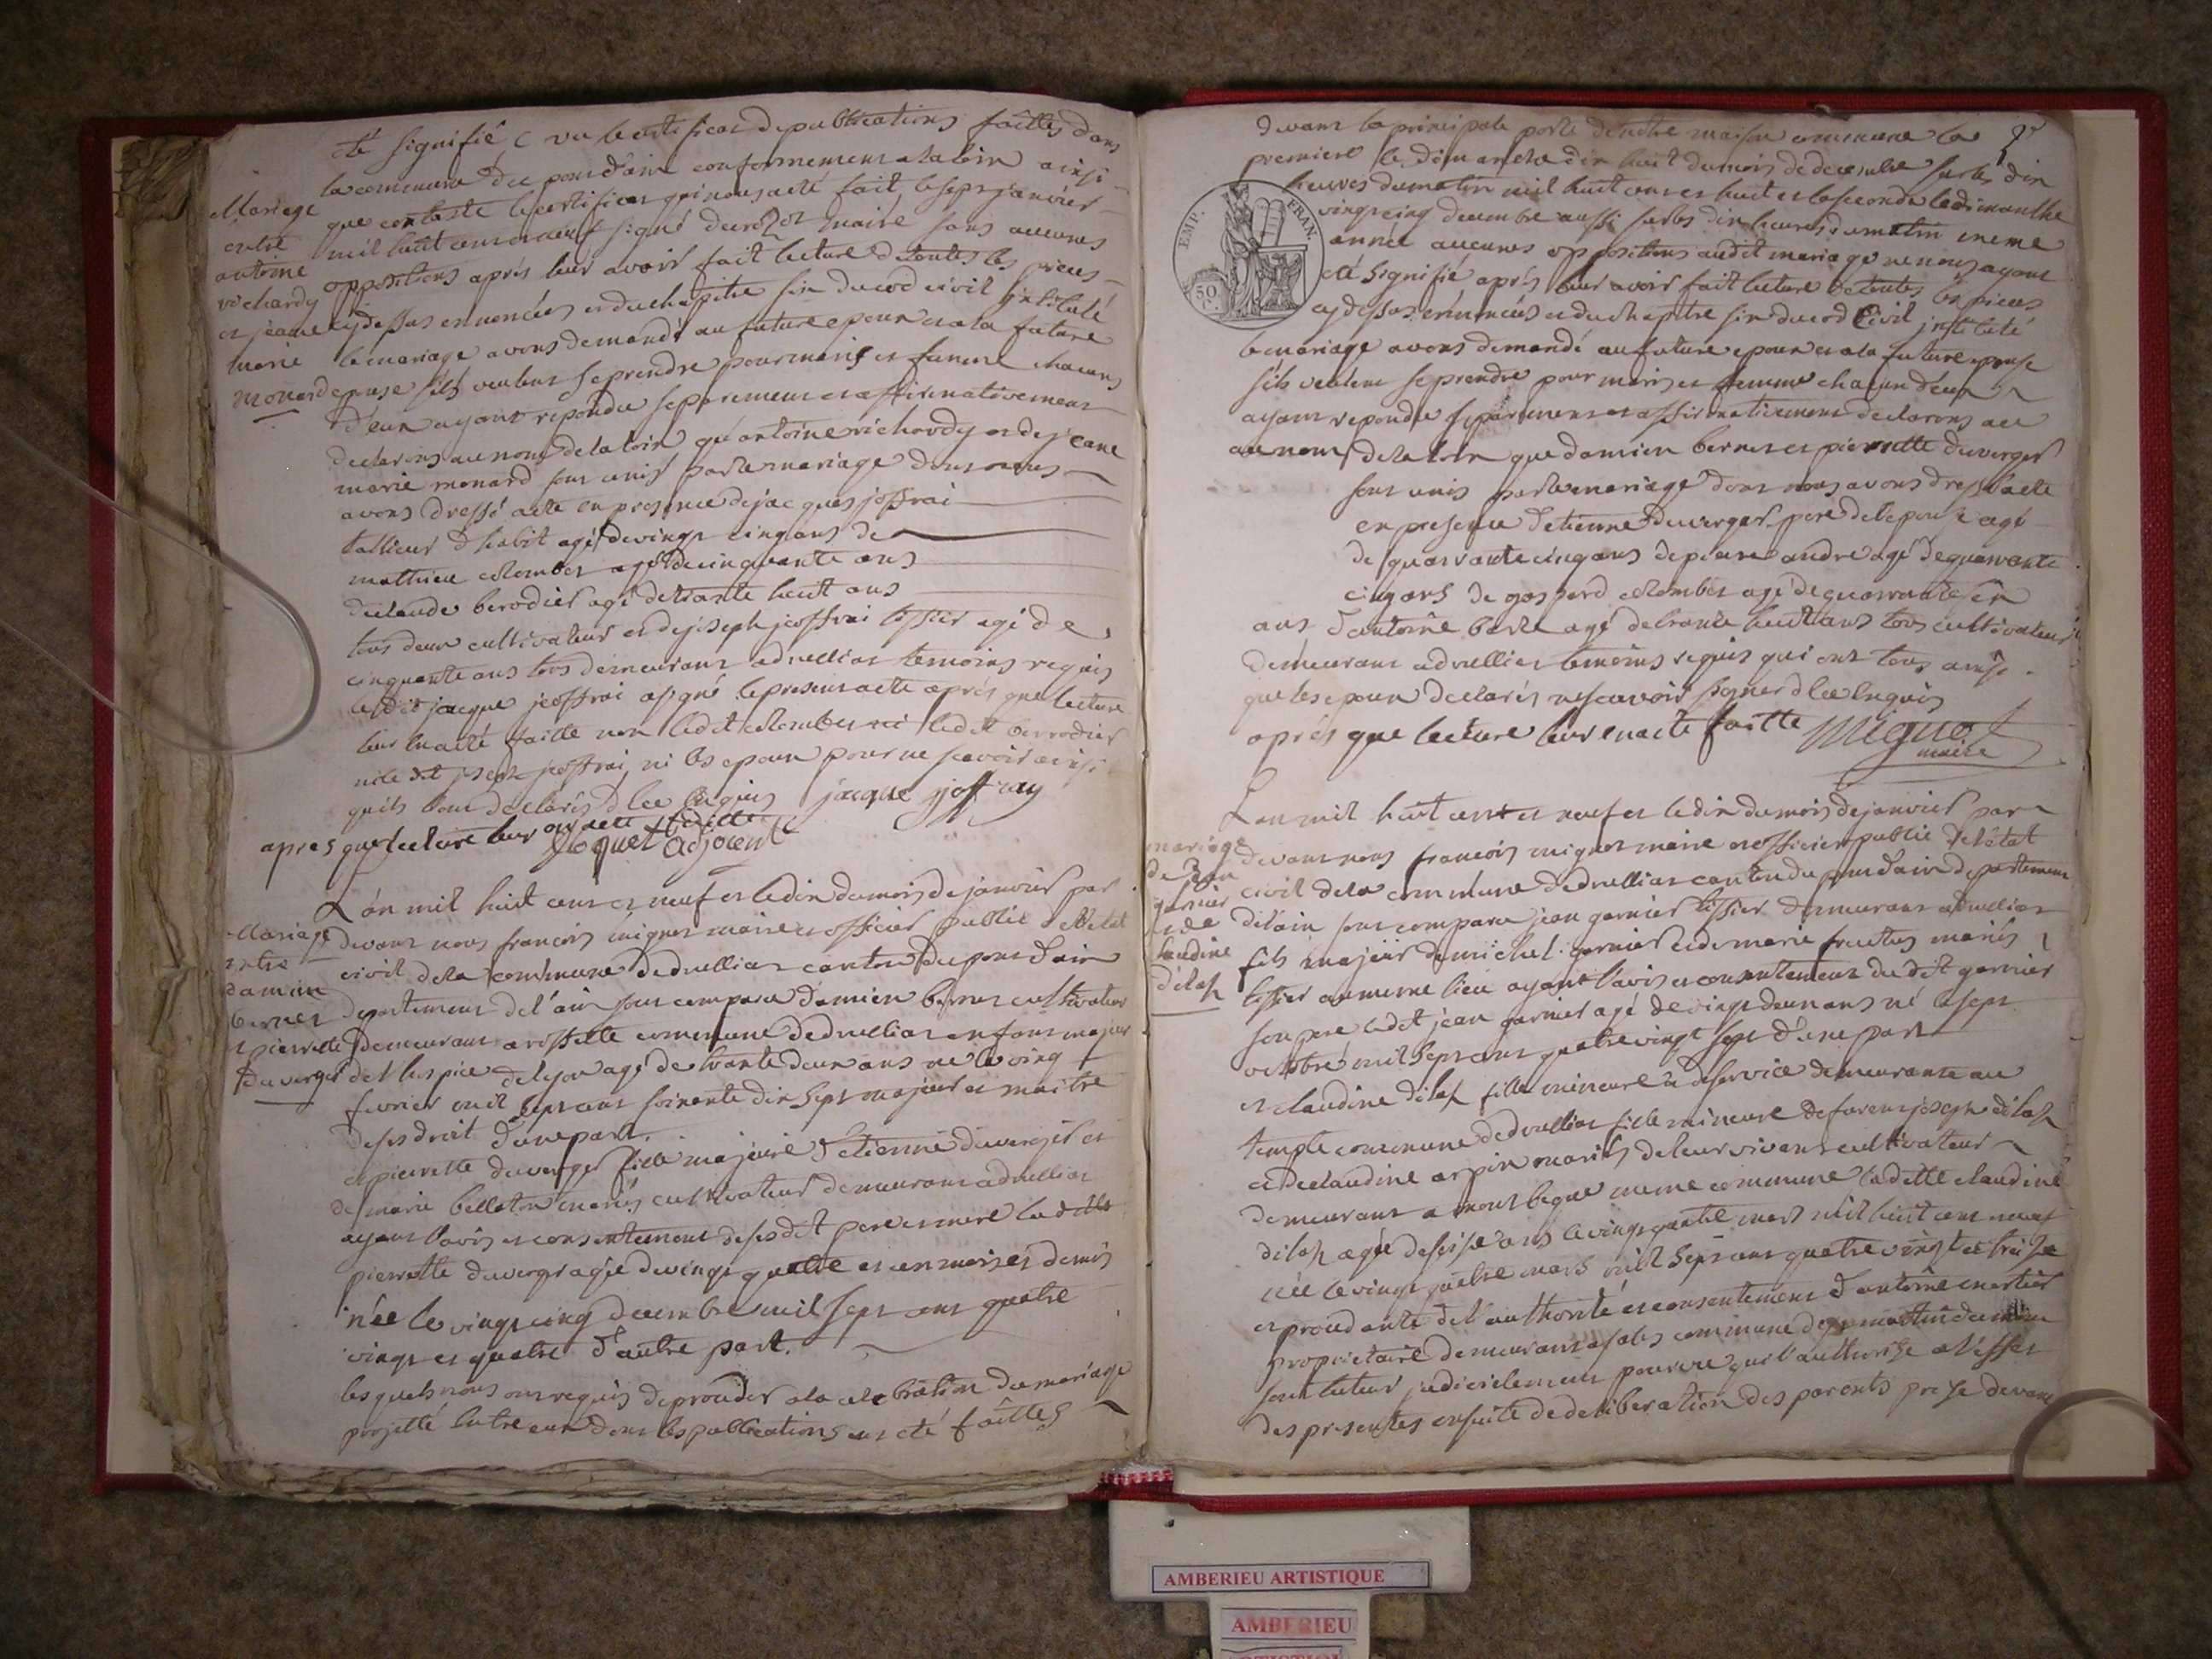 été signifié vu le certificat de publications faittes dans
la commune du pont d'ain conformement a la loix ainsi
que conteste le certificat qui nous a été fait le sept janvier
mil huit cent et neuf signé maire sans aucunes
oppositions aprés leur avoir fait lecture de toutes les pieces
cy dessus ennoncées et du chapitre six du cod civil jntitulé
le mariage avons demandé au future epoux et a la future
epouse sils veulent se prendre pour maris et femme chacuns
d'eux ayant repondu separement et affirmativement
declarons au nom de la loix qu'antoine richardy et de jeane
marie monard sont unis par le mariage dont nous
avons dressé acte en presence de jacques joffrai
tallieur d'habit agé de vingt cinq ans de
mathieu colomber agé de cinquante ans
de claude berodier agé de trante huit ans
tous deux cultivateur et de joseph jeoffrai tissier agé de
cinquante ans tous demeurant a druillias temoins requis
le dit jacque jeoffrai a signé le present acte aprés que lecture
leur en a été faitte non le dit colomber ni le dit berrodier
ni le dit joseph jeoffrai ni les epoux pour ne scavoir ainsi
quils l'ont declarés d ce enquis jacque jjoffray
apres que lecture leur en a été faitte
adjoient
Mariage
entre
antoine
richardy
et jeane
marie
monard
L'an mil huit cent et neuf et le dix du mois de janvier par
devant nous françois mignot maire et officier public de l'etat
civil de la commune de druillias canton du pont d'ain
departement de l'ain sont comparu damien bernet cultivateur
demeurant a rossette commune de druillias enfant majeur
de l'hospice de lyon agé de trante deux ans ne le cinq
fevrier mil sept cent soixante dix sept majeur et maitre
de ses droit d'une part.
et pierrette duverger fille majeure d'etienne duverger et
de marie belleton mariés cultivateur demeurant a druillias
ayant l'avis et consentement de ses dit pere et mere la ditte
pierrette duverger agée de vingt quatre et un mois et demis
née le vingt cinq decembre mil sept cent quatre
vingt et quatre d'autre part.
les quels nous ont requis de proceder a la celebration du mariage
projetté entre eux dont les publications ont été faittes
Mariage
entre
damien
bernet
et pierrette
duverger
devant la principale porte de notre maison commune la
premiere le dimanche dix huit du mois de decembre sur les dix
heures du matin mil huit cent et huit et la seconde le dimanche
vingt cinq decembre aussi sur les dix heures du matin meme
année aucunes oppositions audit mariage ne nous ayant
été signifié aprés leur avoir fait lecture de toutes les pieces
cy dessus ennoncées et du chapitre six du cod Civil jntitulé
le mariage avons demandé au future epoux et a la future epouse
sils veulent se prendre pour maris et femme chacun d'eux
ayant repondu separement et affirmativement declarons au
au nom de la loix que damien bernet et pierrette duverger
sont unis par le mariage dont nous avons dressé acte
en presence d'etienne duverger pere de l'epouse agé
de quarante cinq ans de pierre andre agé de quarante
cinq ans de gaspard colomber agé de quarante un
ans d'antoine barle agé de trante huit ans tous cultivateur
demeurant a druillias temoins requis qui ont tous ainsi
que les epoux declarés ne scavoir signer d ce enquis
aprés que lecture leur en a été faitte Mignot
maire
EMP. FRAN
50
L'an mil huit cent et neuf et le dix du mois de janvier par
devant nous françois mignot maire et officier public de l'état
civil de la commune de druillias canton du pont d'ain departement
de l'ain sont comparu jean garnier tissier demeurant a druillias
fils majeur de michel garnier et de marie fructus mariés
tissier au meme lieu ayant l'avis et consentement du dit garnier
son pere le dit jean garnier agé de vingt deux ans né le sept
octobre mil sept cent quatre vingt sept d'une part
et claudine dilas fille mineure de service demeurante au
temple commune de druillias fille mineure de farent joseph dilas
et de claudine arpin mariés de leur vivant cultivateur
demeurant a mont begue meme commune la ditte claudine
dilas agée de seise ans le vingt quatre mars mil huit cent neuf
née le vingt quatre mars mil sept cent quatre vingt et treise
et procedante de l'authorité et consentement d'antoine mortier
proprietaire demeurant a commune de
son tuteur judicielement pourvu qui l'authorise a l'effet
des presentes ensuite de deliberation des parents prise devant
mariage
de jean
garnier
et de
claudine
dilas
AMBERIEU ARTISTIQUE
AMBERIEU
ARTISTIQUE